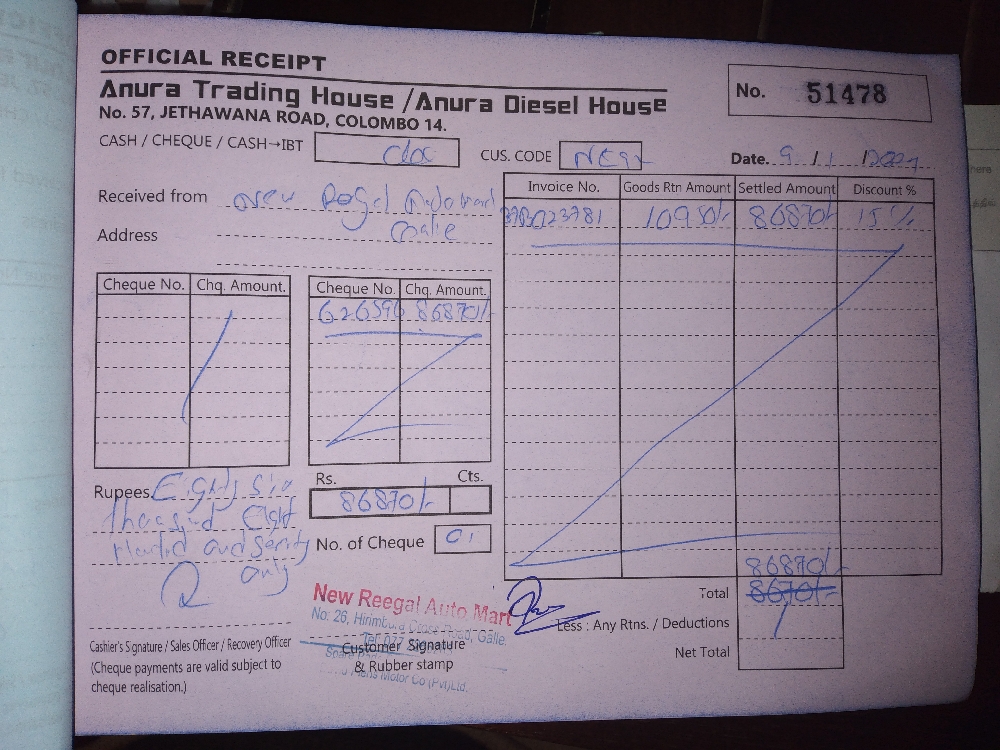 OFFICIAL RECEIPT
Anura Trading House / Anura Diesel House
No. 57, JETHAWANA ROAD, COLOMBO 14.
No. 51478
CASH / CHEQUE / CASH→IBT
CUS. CODE
Date. 9 / 1 /
Received from New
Address Galle
Invoice No. Goods Rtn Amount Settled Amount Discount %
10950/- 86870/- 15%
Cheque No. Chq. Amount. Cheque No. Chq. Amount.
626596 86870/-
Rupees. Eighty Six
Thousand Eight
and Seventy
only
Rs. Cts.
86870/-
No. of Cheque 01
86870/-
Total 8670/-
Less : Any Rtns. / Deductions
Net Total
New Reegal Auto Mart
No: 26, Hirimbura Cross Road, Galle.
Customer Signature
& Rubber stamp
Motor Co (Pvt)Ltd.
Cashier's Signature / Sales Officer / Recovery Officer
(Cheque payments are valid subject to
cheque realisation.)